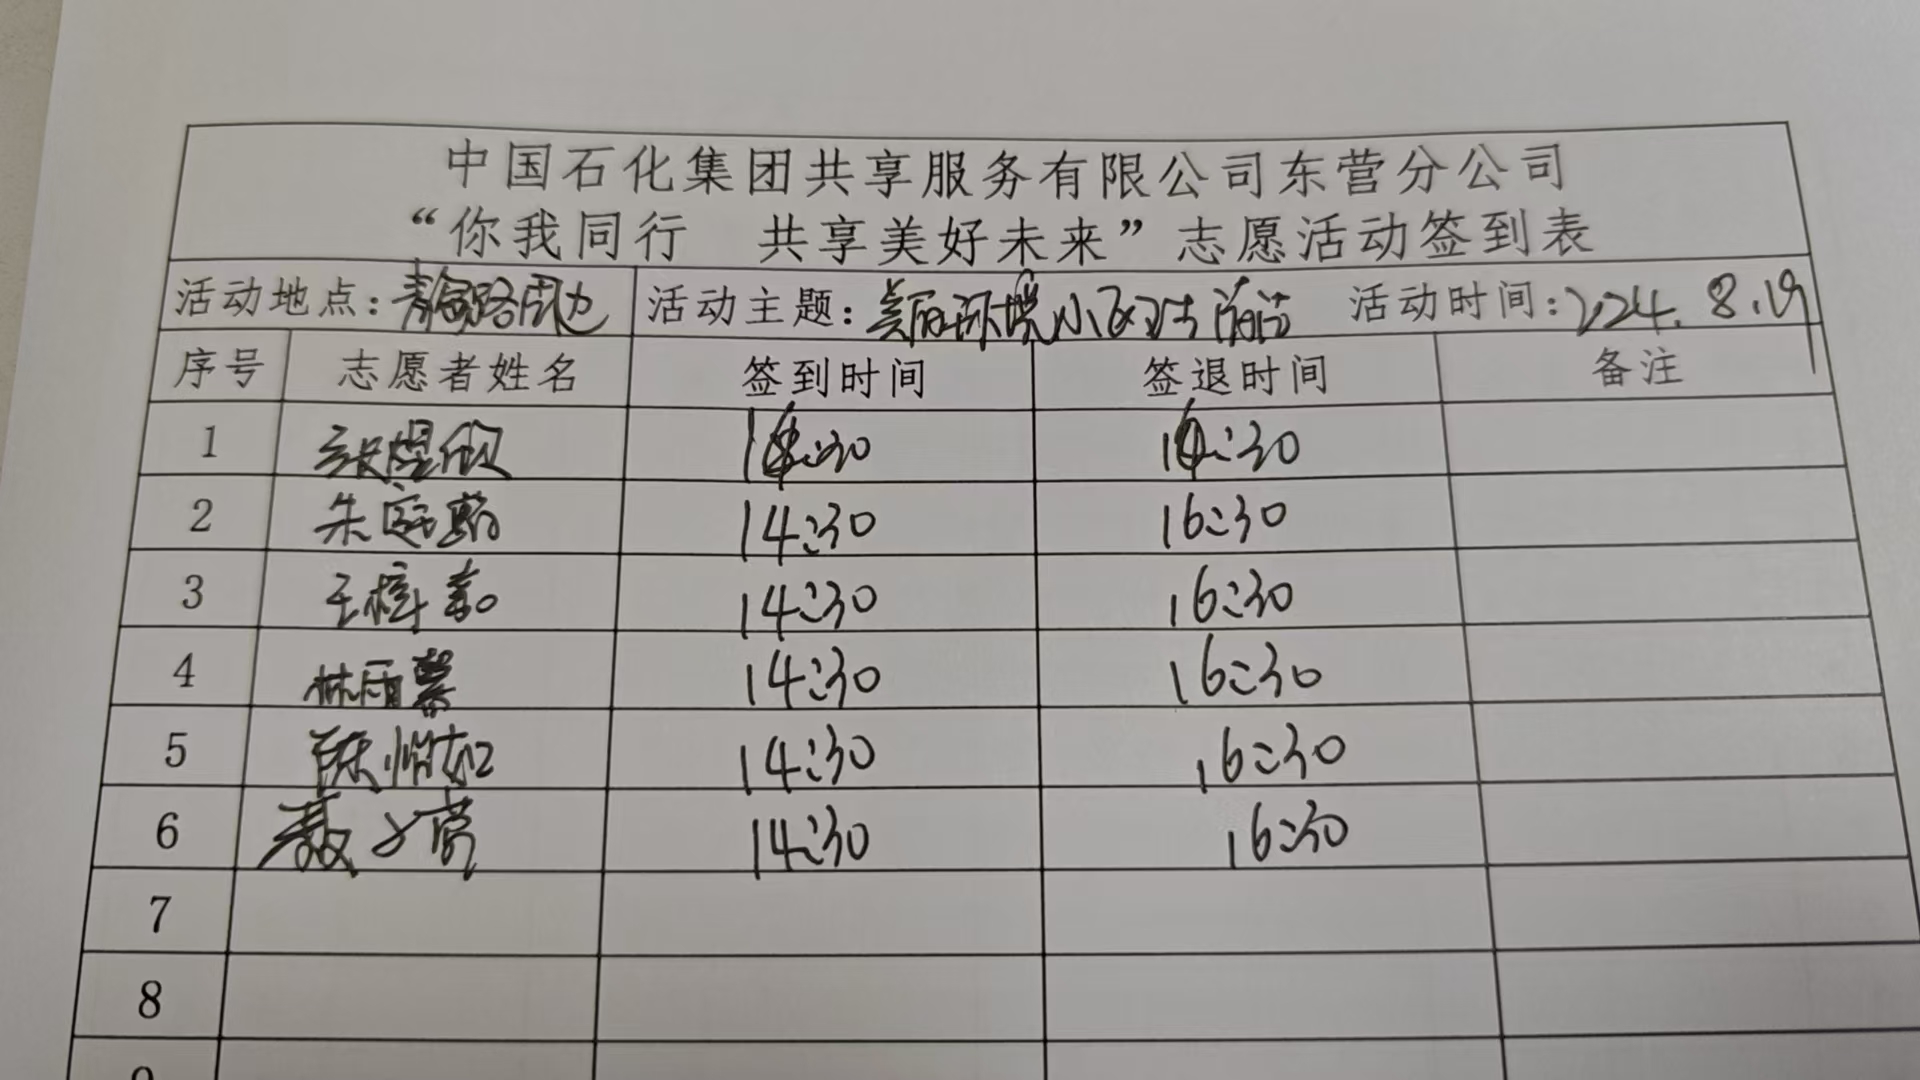 中国石化集团共享服务有限公司东营分公司
“你我同行 共享美好未来”志愿活动签到表
活动地点：路周边 活动主题：美丽环境小区 清洁 活动时间：2024.8.19
序号 志愿者姓名 签到时间 签退时间 备注
1 :30 :30
2 朱 14:30 16:30
3 王梓 14:30 16:30
4 林雨馨 14:30 16:30
5 陈怡如 14:30 16:30
6 聂 14:30 16:30
7
8
9